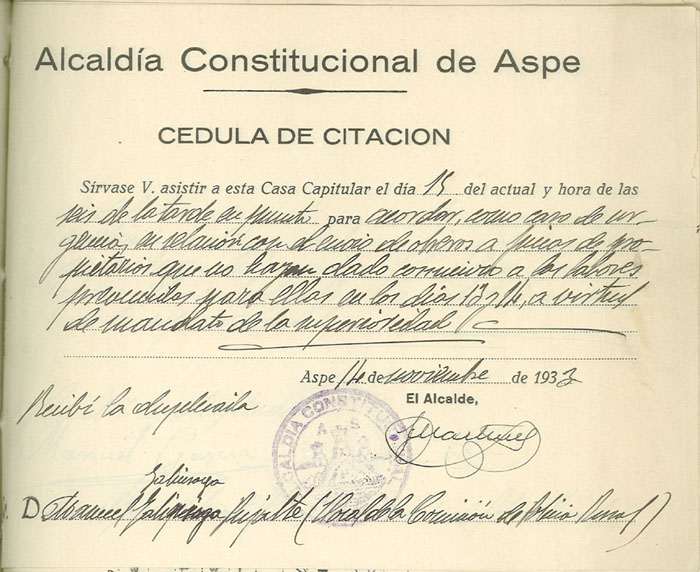 Alcaldía Constitucional de Aspe
CEDULA DE CITACION
Sírvase V. asistir a esta Casa Capitular el día 15 del actual y hora de las
seis de la tarde en punto para acordar, como caso de ur-
gencia, en relación con el envio de obreros a fincas de pro-
pietarios que no hayan dado comienzo a los labores
para ellas en los días 13 y 14, a virtud
de mandato de la superioridad
Aspe 14 de noviembre de 1933
El Alcalde,
Recibí la duplicada
ALCALDIA CONSTITUCIONAL
Galinsoga
D. Manuel (Vocal de la Comisión de Policia Rural)